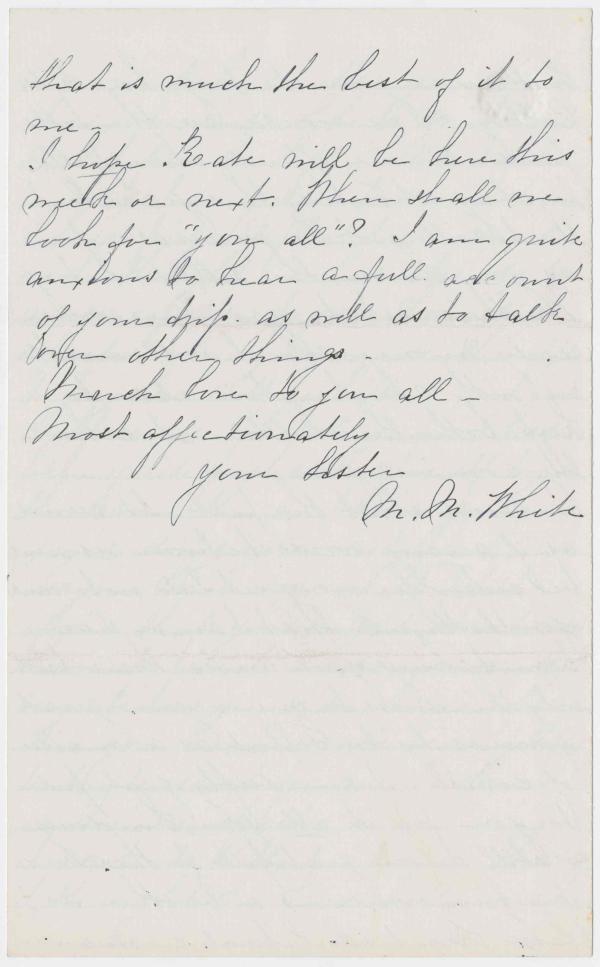 that is much the best of it to
me -
I hope Kate will be here this
week or next. When shall we
look for "you all"? I am quite
anxious to hear a full account
of your trip. as well as to talk
over other things -
Much love to you all -
Most affectionately
your sister
M. M. White